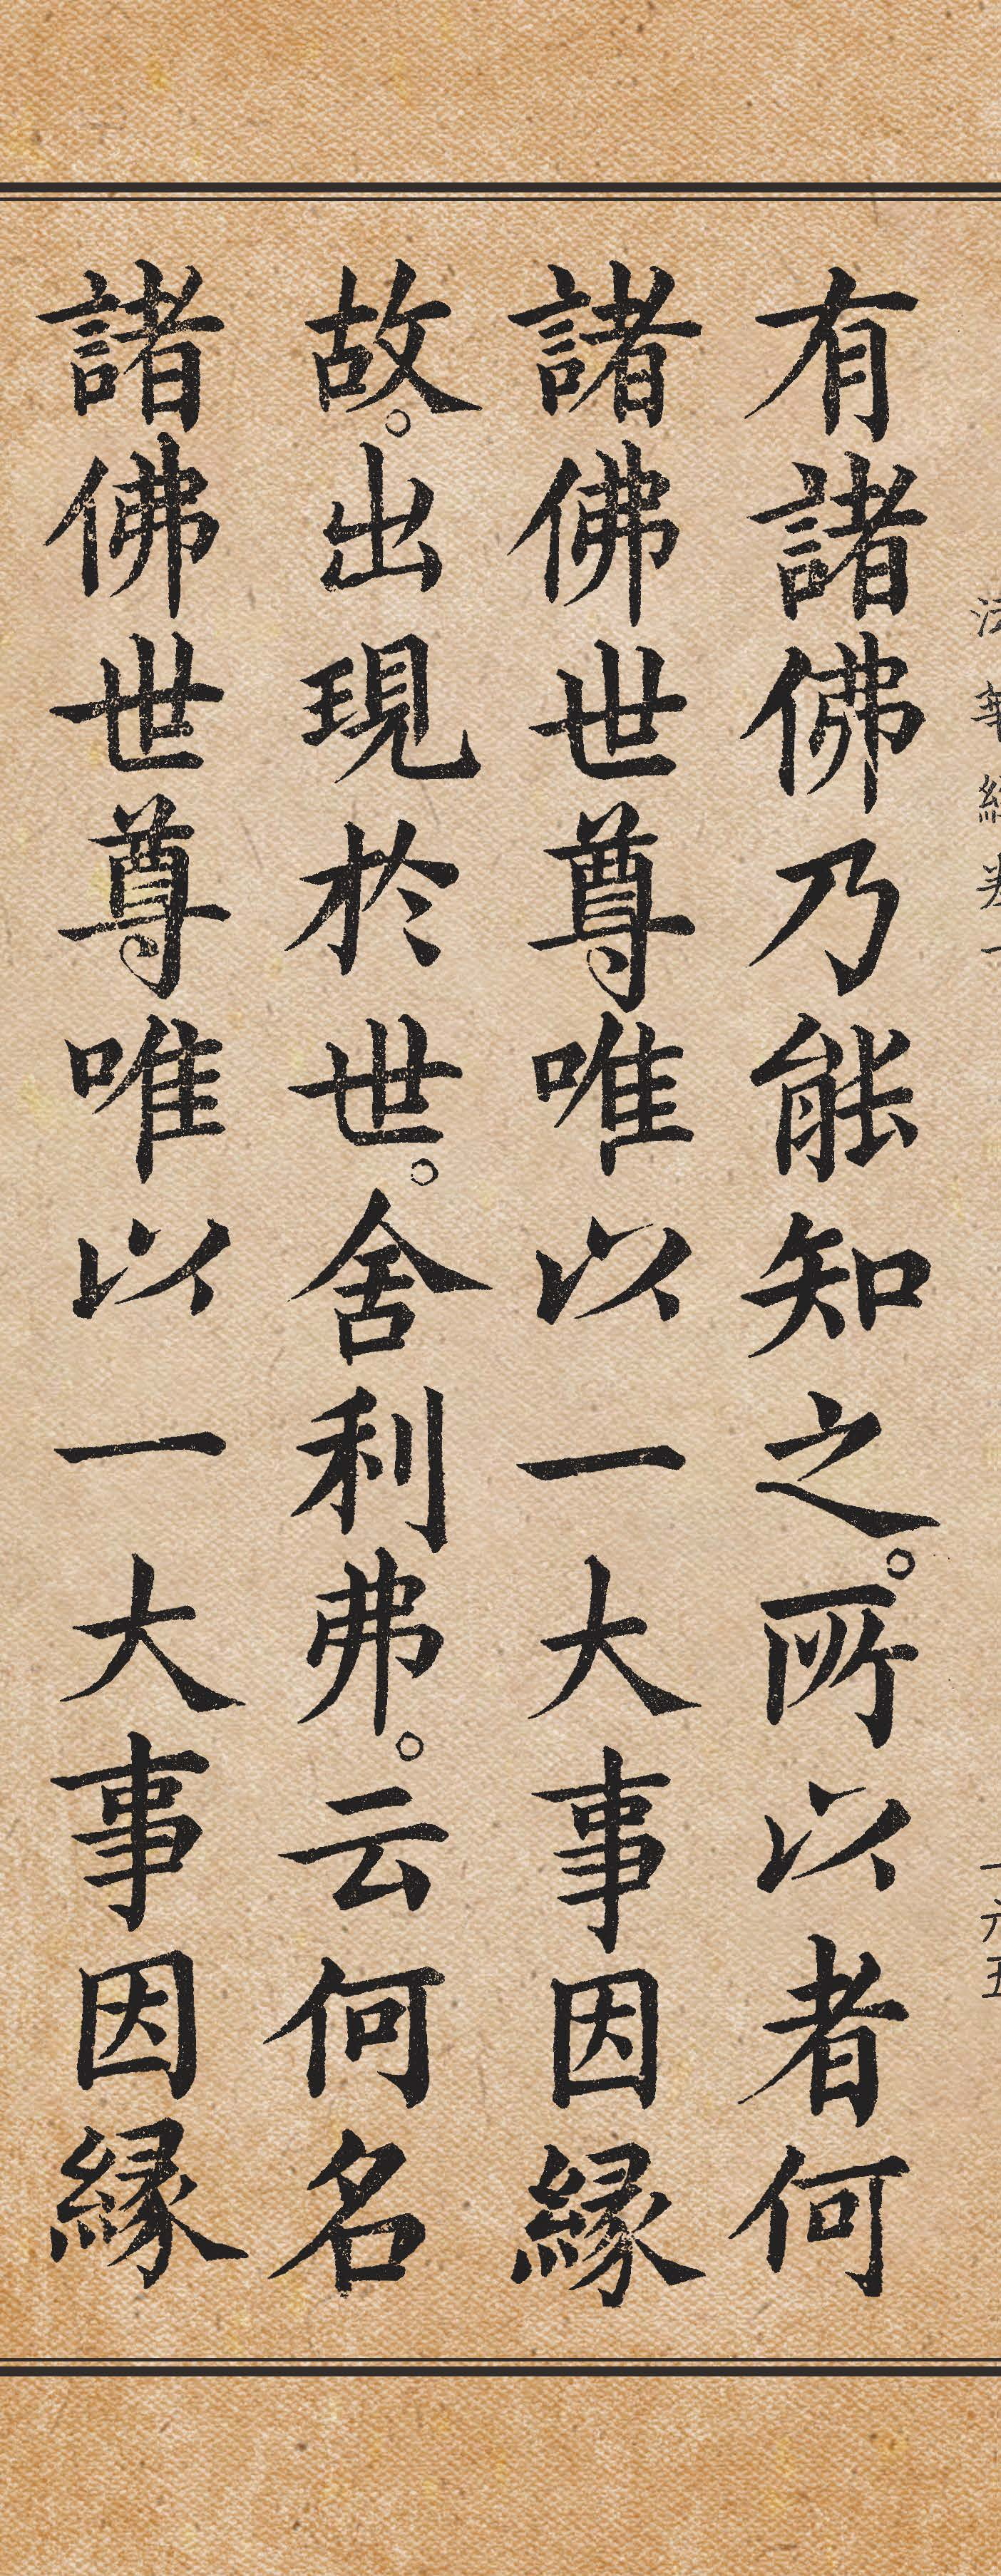 有諸佛乃能知之。所以者何
諸佛世尊唯以一大事因緣
故。出現於世。舍利弗。云何名
諸佛世尊唯以一大事因緣